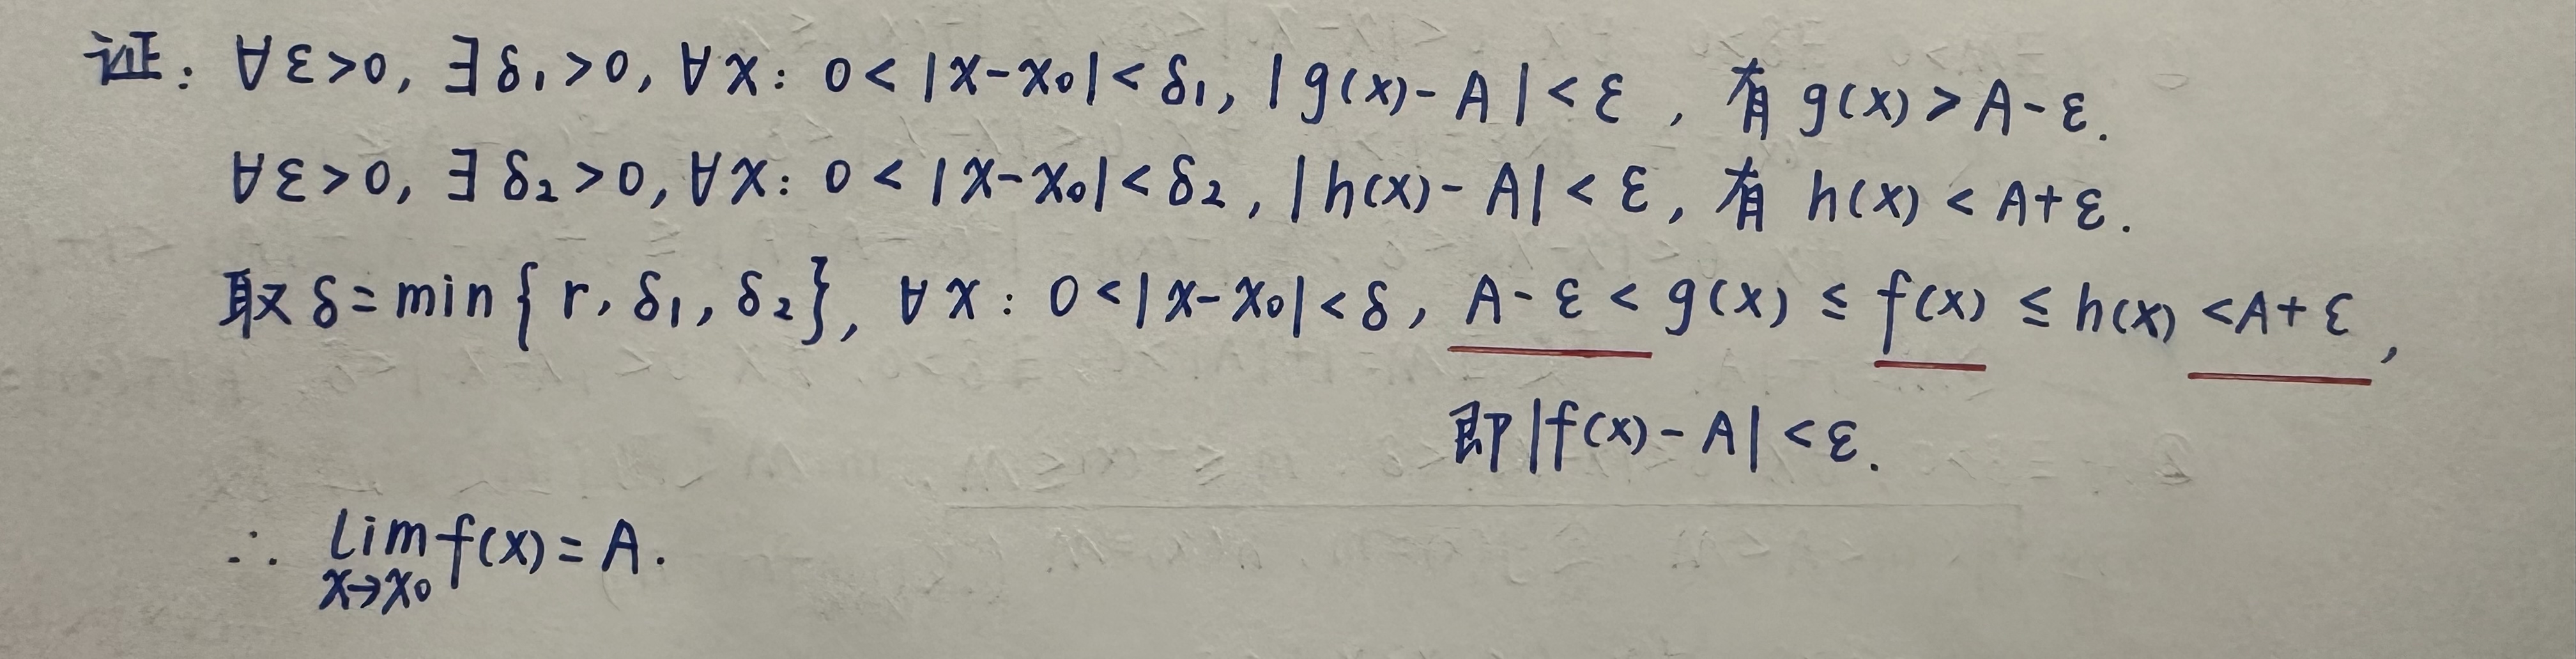 证: ∀ε>0, ∃δ₁>0, ∀x: 0<|x-x₀|<δ₁, |g(x)-A|<ε, 有 g(x)>A-ε.
∀ε>0, ∃δ₂>0, ∀x: 0<|x-x₀|<δ₂, |h(x)-A|<ε, 有 h(x)<A+ε.
取 δ=min{r, δ₁, δ₂}, ∀x: 0<|x-x₀|<δ, A-ε<g(x)≤f(x)≤h(x)<A+ε,
即|f(x)-A|<ε.
∴ lim f(x)=A.
x→x₀